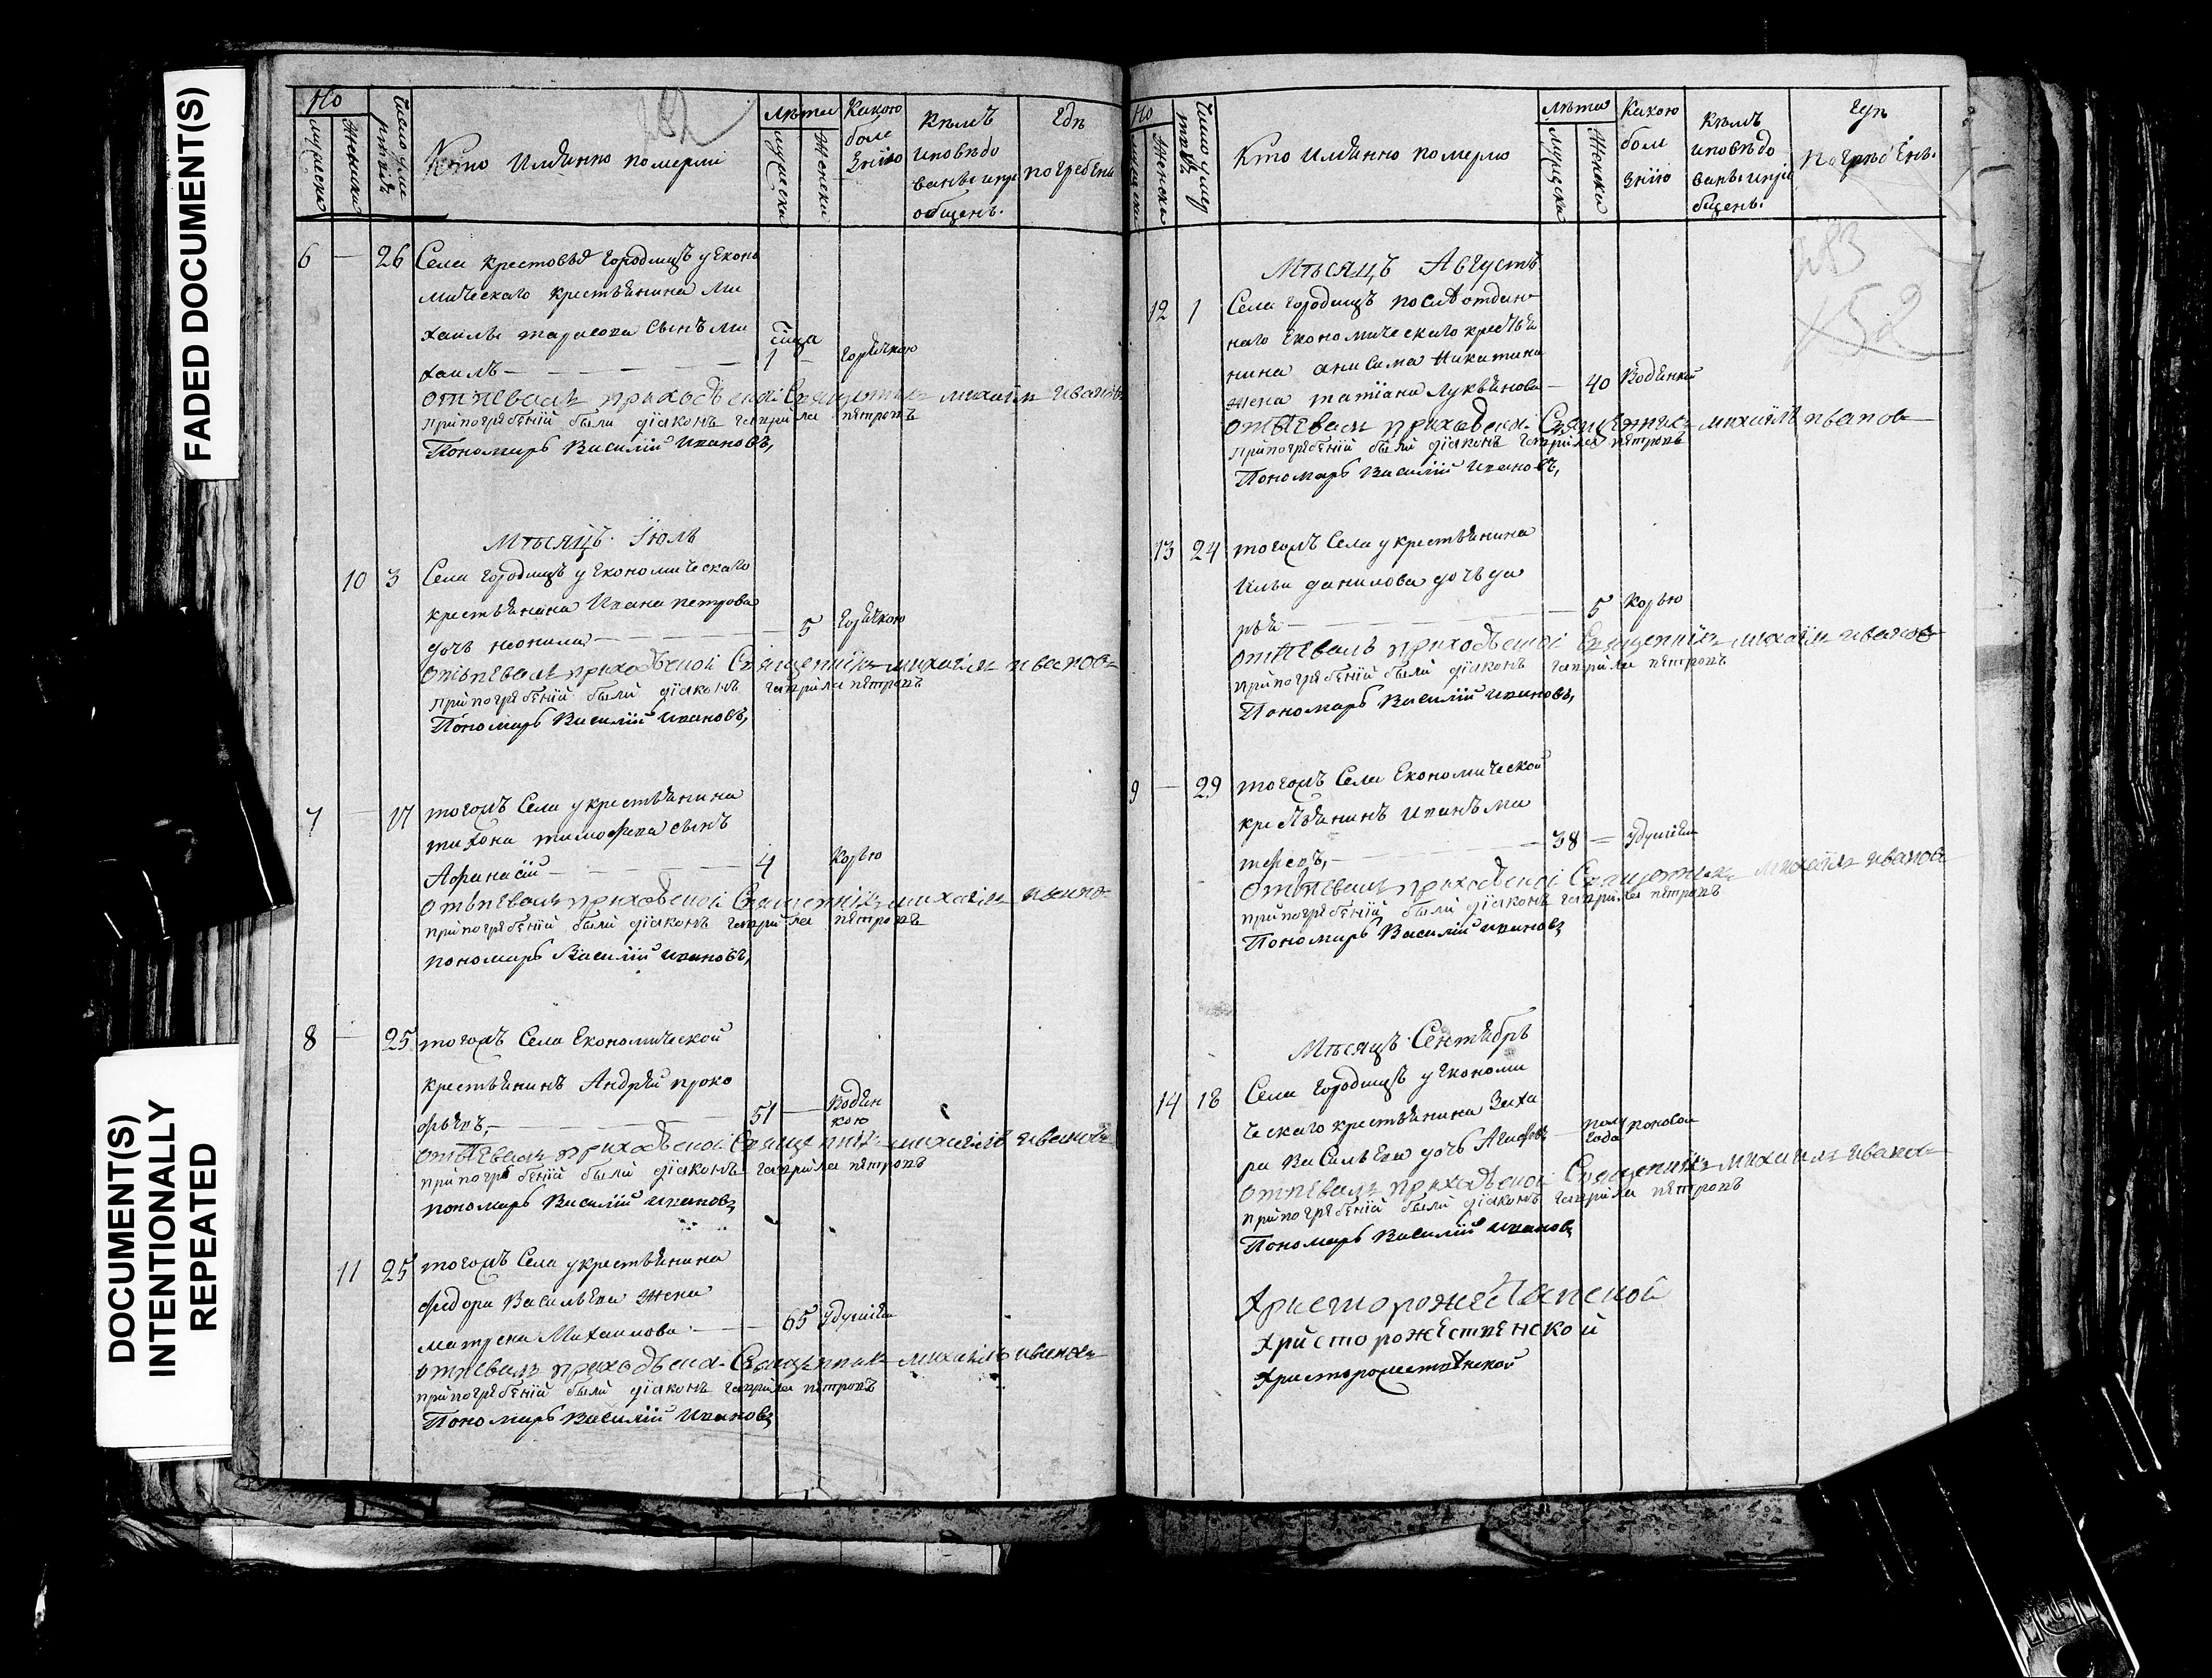 FADED DOCUMENT(S)
DOCUMENT(S)
INTENTIONALLY
REPEATED
Но
мужеска
Женска
Число уме
ртвія
Кто Имянно померли
лѣта
мужеска
Женска
Какою
боле
знию
Кѣмъ
исповѣдо
ванъ и прі
общенъ.
Гдѣ
погребены
6 — 26 Села Крестовъ Городищъ у Еконо
мическаго крестьянина Ми
хаилы тарасова сынъ Ми
хаилъ — 1 — Горячкою
отпевалъ приходской Священникъ михаилъ иванов
при погребеніи были діаконъ гаврила петровъ
Пономарь Василій Ивановъ,
Мѣсяцъ Іюль
10 3 Села Городищъ у Економическаго
крестьянина Ивана петрова
дочь неонила — 5 Горячкою
отпевалъ приходской Священникъ михаилъ иванов
при погребеніи были діаконъ гаврила петровъ
Пономарь Василій Ивановъ,
7 — 17 тогожъ Села у крестьянина
тихона тимофеева сынъ
Афанасій — 4 Корью
отпевалъ приходской Священникъ михаилъ ивано
при погребеніи были діаконъ гаврила петровъ
пономарь Василій Ивановъ,
8 — 25 тогожъ Села Економической
крестьянинъ Андрей проко
фьевъ, — 51 — Водян
кою
отпевалъ приходской Священникъ михаилъ иванов
при погребеніи были діаконъ гаврила петровъ
пономарь Василій Ивановъ
11 25 тогожъ Села у крестьянина
федора Васильева жена
матрена Михаилова — 65 Удушьем
отпевалъ приходской Священникъ михаилъ иванов
при погребеніи были діаконъ гаврила петровъ
Пономарь Василій Ивановъ
Но
Женска
Кто Имянно померло
лѣта
мужеска
Женска
Какою
боле
знію
Кѣмъ
исповѣдо
ванъ и прі
бщенъ.
Гдѣ
Погребенъ.
283
152
Мѣсяцъ Августъ
12 1 Села Городищъ
наго Економическаго крестья
нина анисима Никитина
жена татіана Лукьянова — 40 Водянкой
отпевалъ приходской Священникъ михаилъ иванов
при погребеніи были діаконъ гаврила петровъ
Пономарь Василій Ивановъ,
13 24 тогожъ Села у крестьянина
Ильи данилова дочь да
рья — 5 Корью
отпевалъ приходской Священникъ михаилъ иванов
при погребеніи были діаконъ гаврила петровъ
Пономарь Василій Ивановъ,
9 — 29 тогожъ Села Економической
крестьянинъ Иванъ Ма
твеевъ, — 38 — Удушьем
отпевалъ приходской Священникъ михаилъ иванов
при погребеніи были діаконъ гаврила петровъ
Пономарь Василій Ивановъ
Мѣсяцъ Сентябрь
14 18 Села Городищъ у Економи
ческаго крестьянина Заха
ра Васильева дочь — полу
года
отпевалъ приходской Священникъ михаилъ иванов
при погребеніи были діаконъ гаврила петровъ
Пономарь Василій Ивановъ
Христорожественской
Христорожественской
Христорожественской